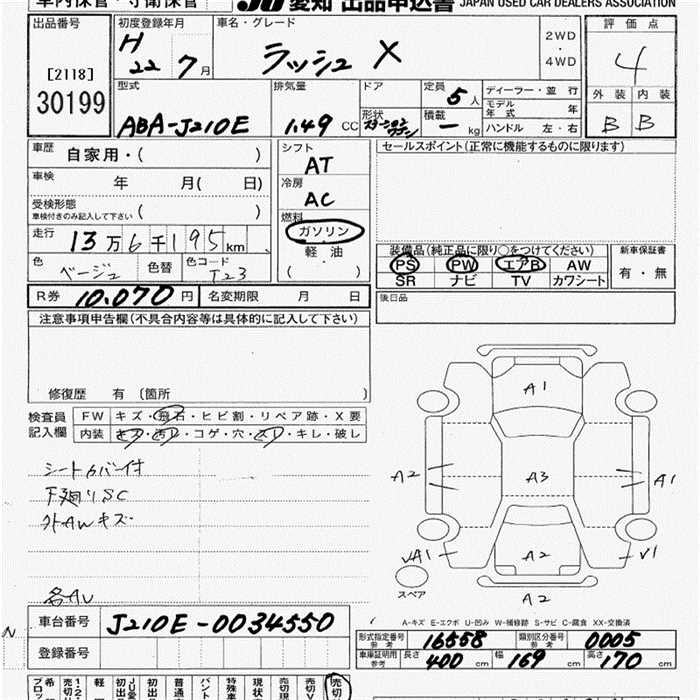 車内保管・守衛保管
JU愛知 出品申込書 JAPAN USED CAR DEALERS ASSOCIATION
出品番号
[2118]
30199
初度登録年月
H 22 7月
車名・グレード
ラッシュ X
2WD
・
4WD
評価点
4
外装 内装
B B
型式
ABA-J210E
排気量
1.49 CC
ドア
形状
定員
5人
積載
ー kg
ディーラー・並行
モデル年式 年
ハンドル 左・右
車歴 自家用・( )
車検 年 月( 日)
受検形態
車検付きのみ記入して下さい ( )
走行 13万6千195km
色 ベージュ 色替 色コード T23
R券 10,070円 名変期限 月 日
シフト
AT
冷房
AC
燃料
ガソリン
軽油
( )
セールスポイント(正常に機能するものに限ります)
装備品(純正品に限り〇をつけてください)
PS PW エアB AW
SR ナビ TV カワシート
新車保証書
有・無
後日品
注意事項申告欄(不具合内容等は具体的に記入して下さい)
修復歴 有 〔箇所 〕
検査員記入欄
FW キズ・飛石・ヒビ割・リペア跡・X要
内装 キズ・汚レ・コゲ・穴・スレ・キレ・破レ
シートカバー付
下廻りSC
外AWキズ
各AU
A1
A2
A3
A1
VA1
A2
V1
スペア
A2
A-キズ E-エクボ U-凹み W-補修跡 S-サビ C-腐食 XX-交換済
N
車台番号 J210E-0034550
登録番号
形式指定番号 参考 16558 類別区分番号 参考 0005
車庫証明用 参考 長さ 400 cm 幅 169 cm 高さ 170 cm